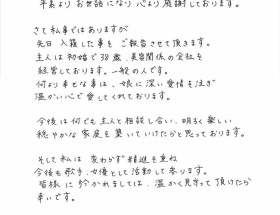 平素より お世話になり 心より感謝しております。
さて 私事ではありますが
先日 入籍した事を ご報告させて頂きます。
主人は 初婚で 38歳、美容関係の会社を
経営しております。一般の人です。
何より幸せな事は、娘に深い愛情を注ぎ
温かい心で愛してくれております。
今後は 何でも主人と相談し合い、明るく楽しい
穏やかな家庭を築いていけたらと思っております。
そして私は 変わらず精進を重ね
今後も歌手、女優として活動して参ります。
皆様に於かれましては、温かく見守って頂けたら
幸いです。